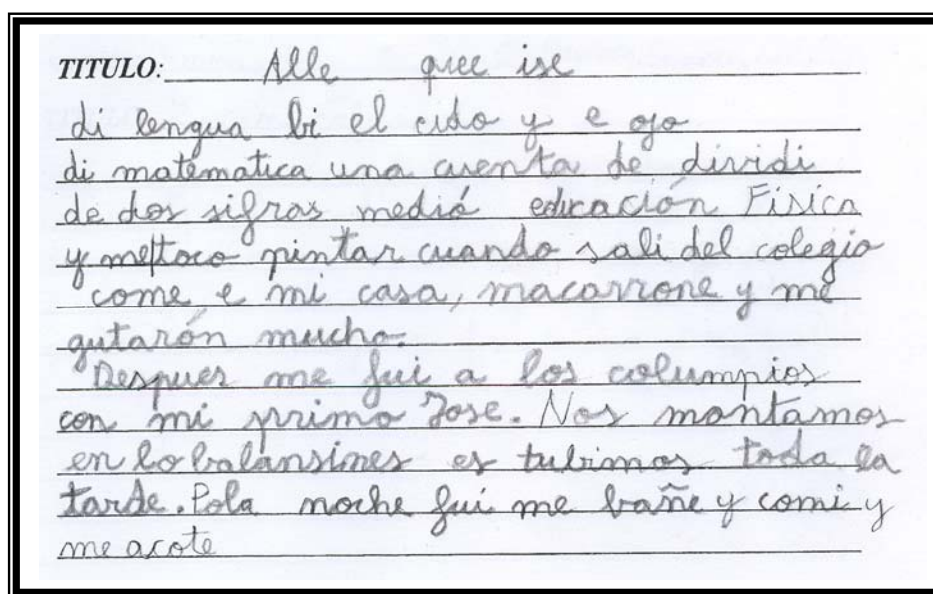 TITULO: Alle que ise
di lengua bi el cido y e ojo
di matematica una cuenta de dividi
de dos sifras medió educación Fisica
y me toco pintar cuando sali del colegio
come e mi casa, macarrone y me
gutarón mucho.
Despues me fui a los columpios
con mi primo Jose. Nos montamos
en lo balansines es tubimos toda la
tarde. Pola noche fui me bañe y comi y
me acote